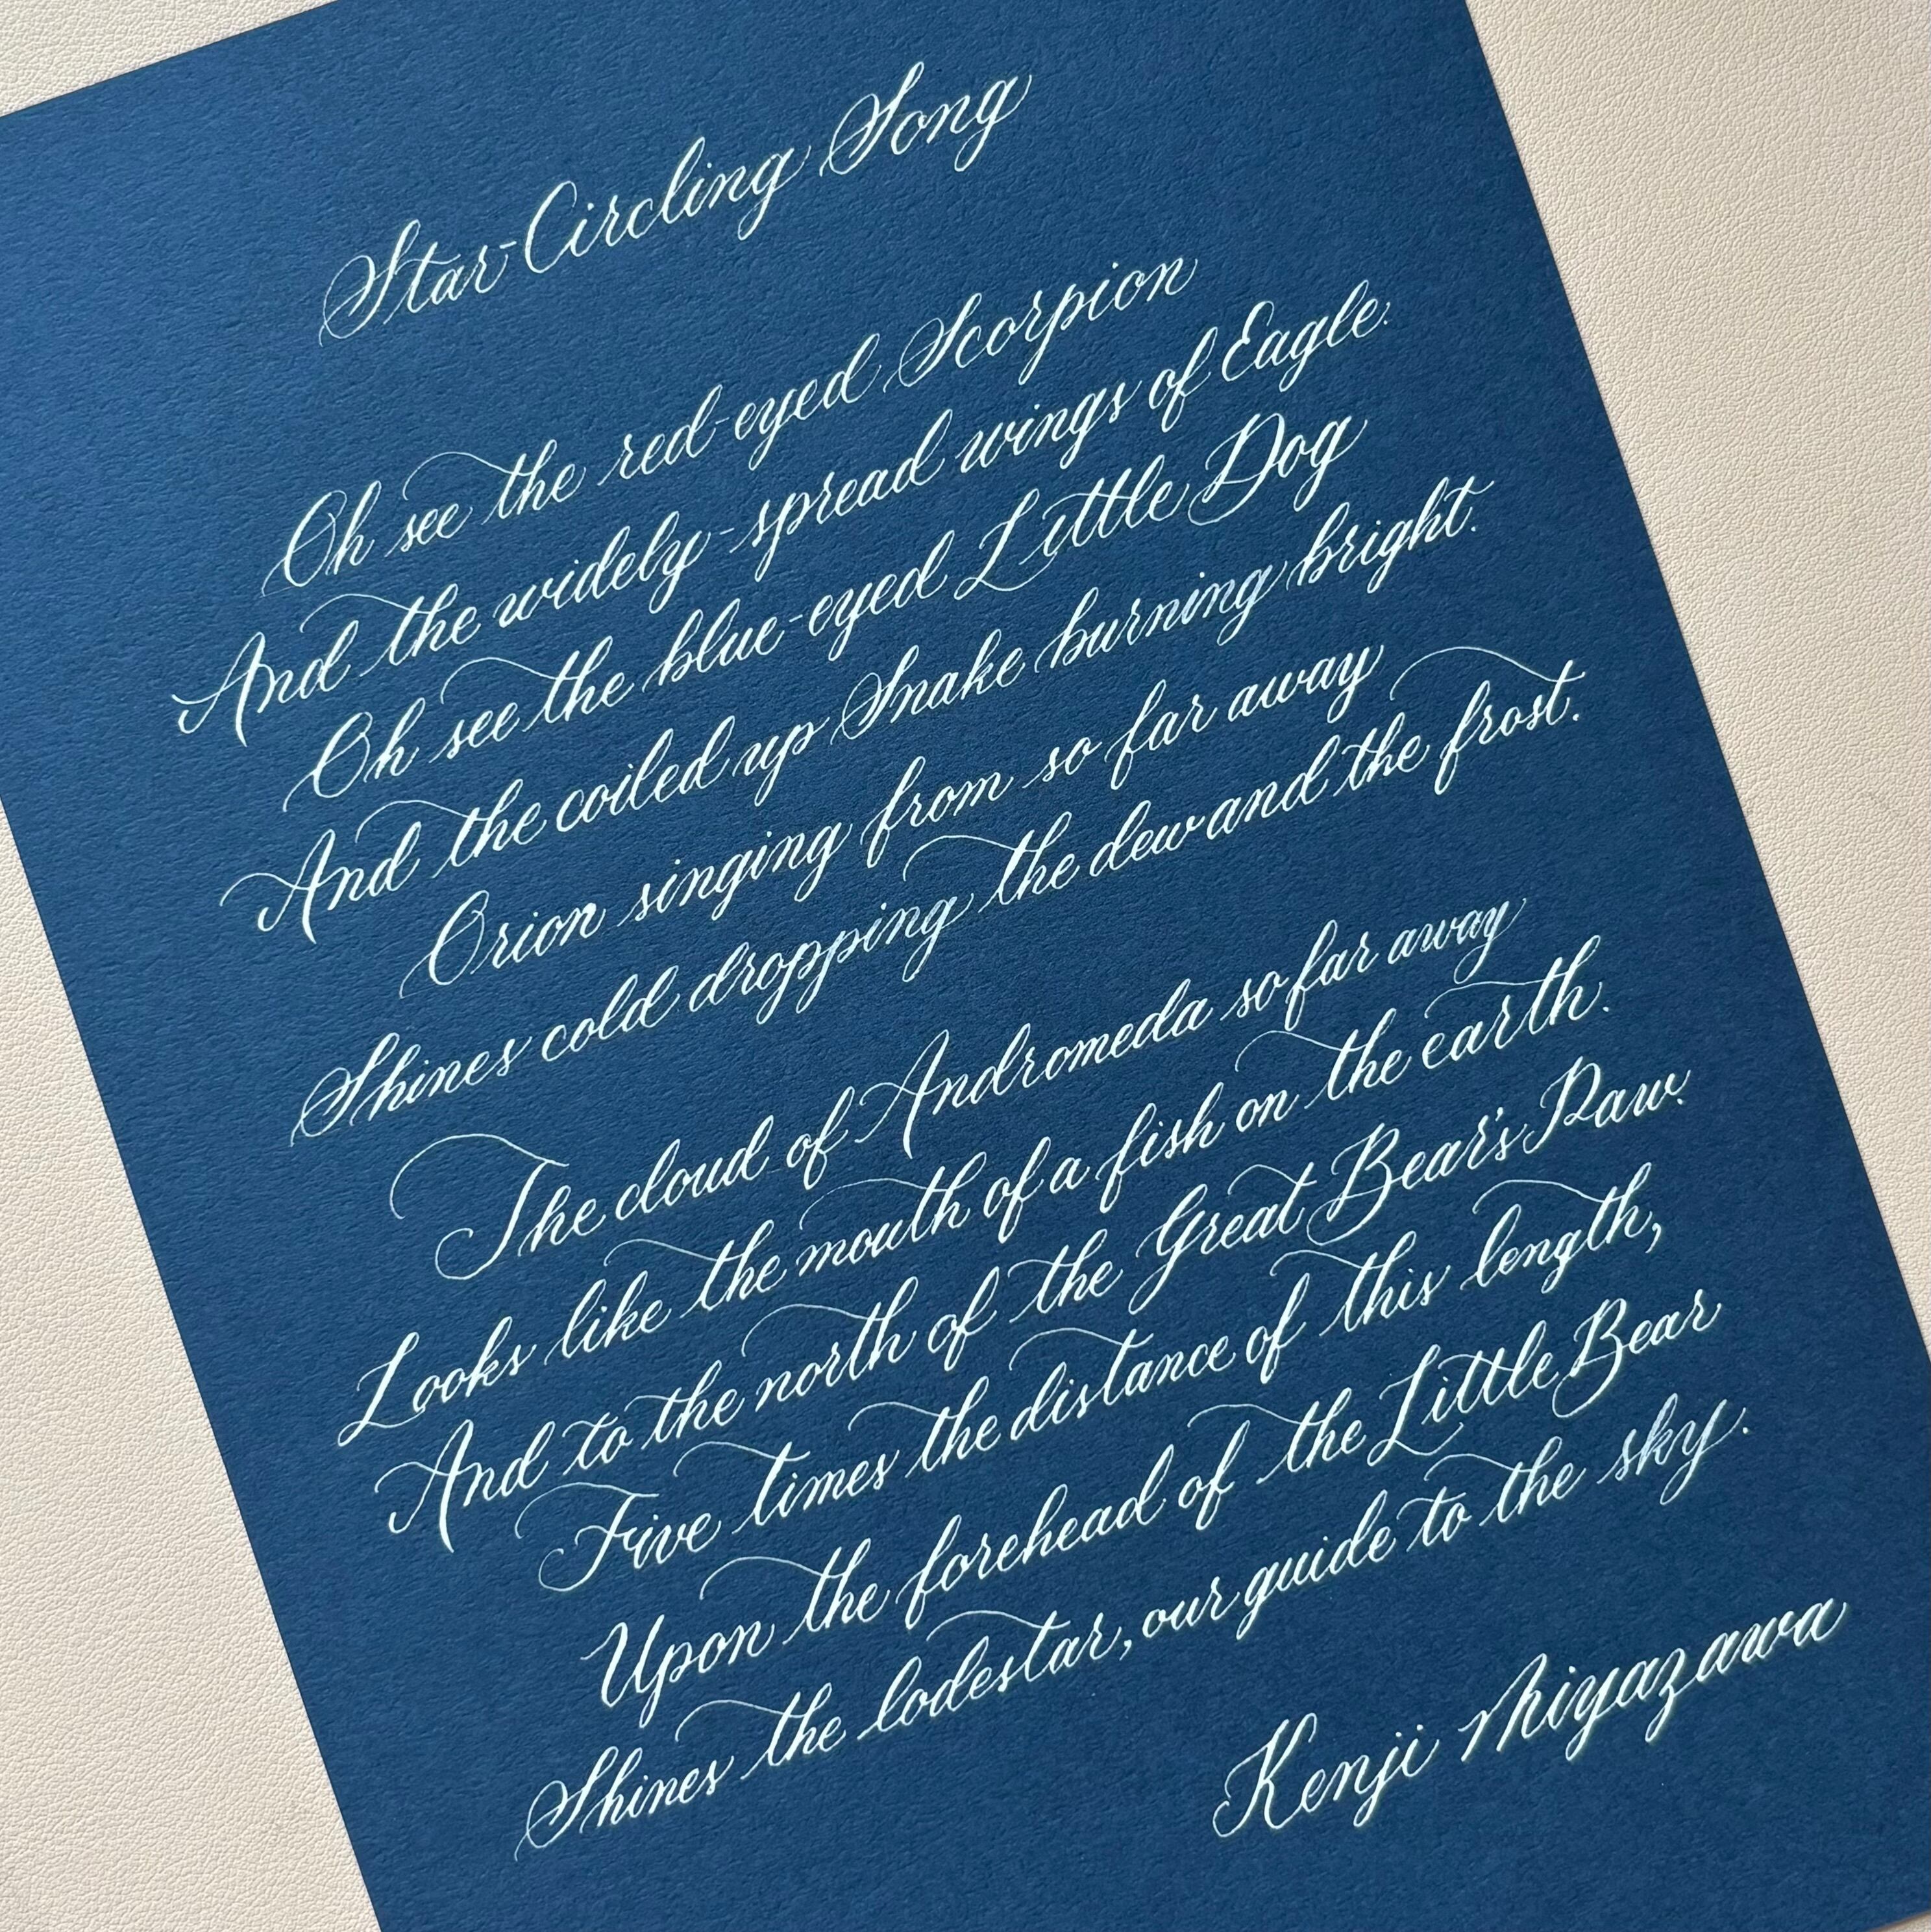 Star-Circling Song
Oh see the red-eyed Scorpion
And the widely-spread wings of Eagle.
Oh see the blue-eyed Little Dog
And the coiled up Snake burning bright.
Orion singing from so far away
Shines cold dropping the dew and the frost.
The cloud of Andromeda so far away
Looks like the mouth of a fish on the earth.
And to the north of the Great Bear's Paw.
Five times the distance of this length,
Upon the forehead of the Little Bear
Shines the lodestar, our guide to the sky.
Kenji Miyazawa